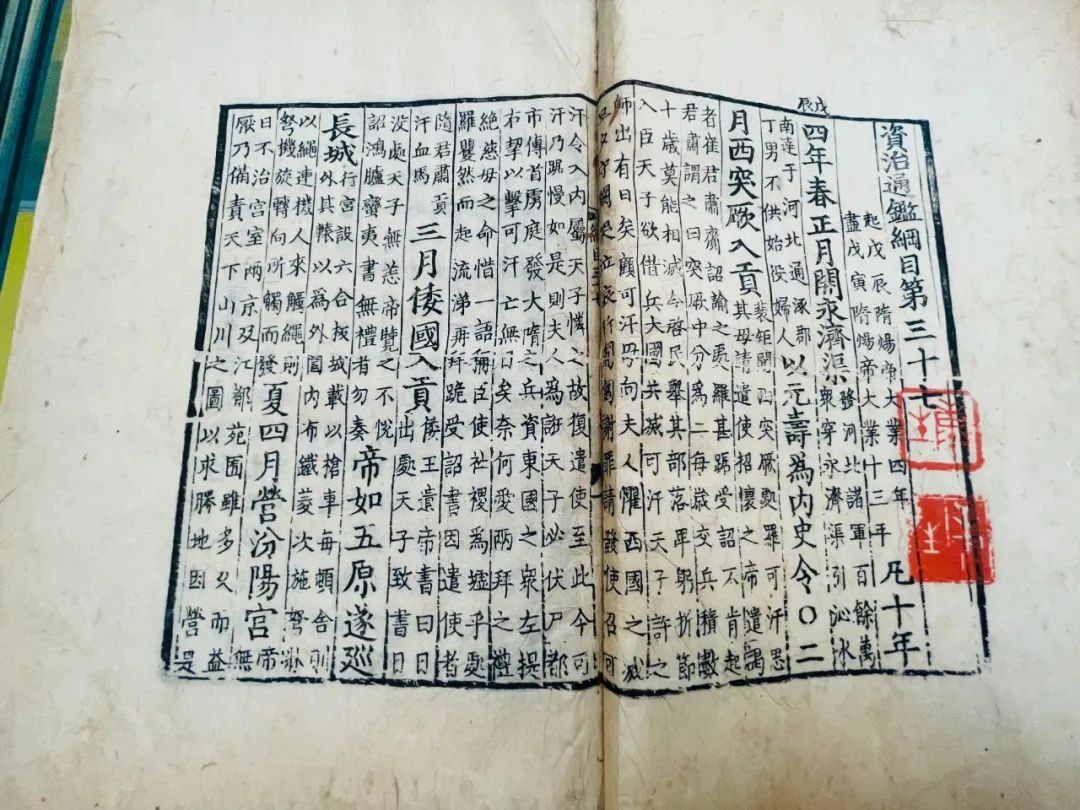 戊辰
資治通鑑綱目第三十七
起戊辰隋煬帝大業四年
盡戊寅隋煬帝大業十三年
凡十年
四年春正月開永濟渠
發河北諸軍百餘萬
衆穿永濟渠引沁水
南達于河北通涿郡
丁男不供始役婦人
以元壽為內史令〇二
月西突厥入貢
裴矩聞西突厥處羅可汗思
其母請遣使招懷之帝遣謁
者崔君肅齎詔諭之處羅甚踞受詔不肯起
君肅謂之曰突厥中分為二每歲交兵積數
十歲莫能相滅今啓民舉其部落卑躬折節
入臣天子欲借兵大國共滅可汗天子許之
師出有日矣顧可汗母向夫人懼西國之滅
旦夕守闕哭泣哀祈匍匐謝罪請發使召可
汗令入內屬天子憐之故復遣使至此今可
汗乃踞慢如是則夫人為誑天子必伏尸都
市傳首虜庭發大隋之兵資東國之衆左提
右挈以擊可汗亡無日矣奈何愛兩拜之禮
絕慈母之命惜一語稱臣使社稷為墟乎處
羅矍然而起流涕再拜跪受詔書因遣使者
隨君肅貢
汗血馬
三月倭國入貢
倭王遺帝書曰日
出處天子致書日
沒處天子無恙帝覽之不悅
詔鴻臚蠻夷書無禮者勿奏
帝如五原遂巡
長城
行宮設六合板城載以槍車每頓舍則
外其轅以為外圍內布鐵菱次施弩牀
以繩連機人來觸繩則
弩機旋轉向所觸而發
夏四月營汾陽宮
帝無
日不治宮室兩京及江都苑囿雖多久而益
厭乃備責天下山川之圖以求勝地因營是